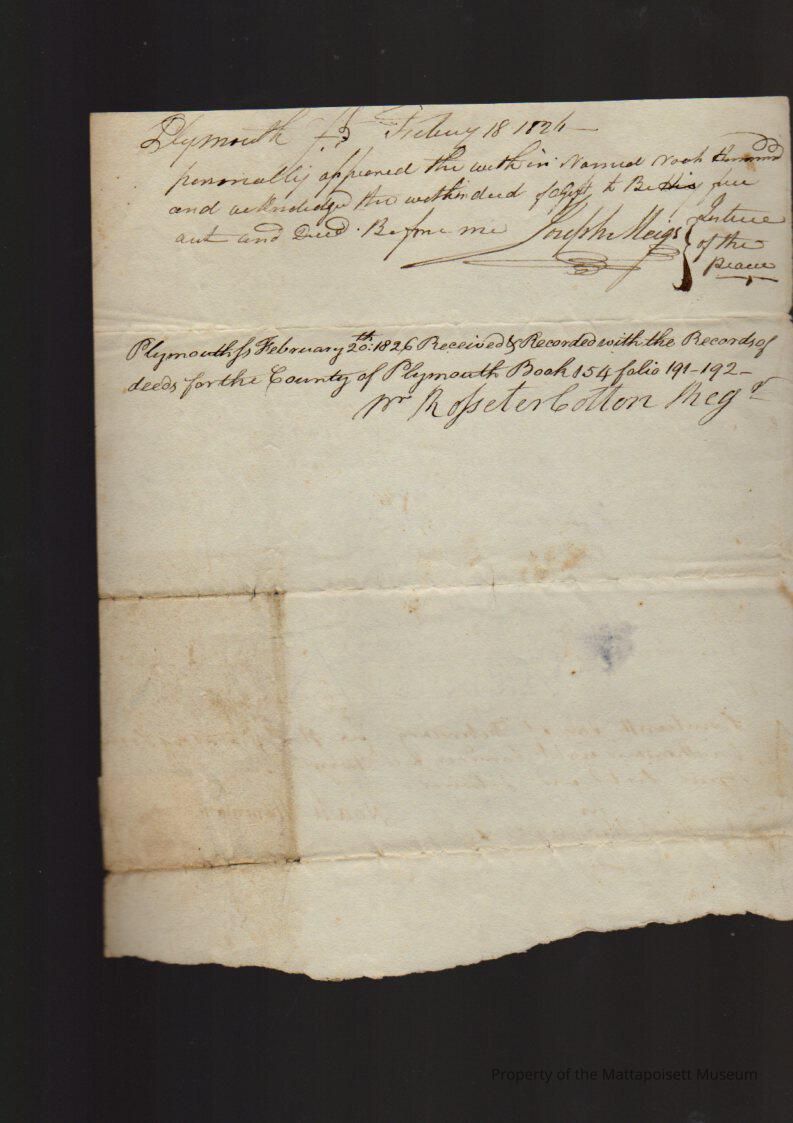 Plymouth ss Febuy 18 1826 —
personally appeared the with in Named Noah Hammond
and acknoledge the within deed of Gift to Be His free
act and Deed. Before me Joseph Meigs { Justice
of the
peace
Plymouth ss February 20th: 1826 Received & Recorded with the Records of
deeds for the County of Plymouth Book 154 folio 191-192-
Wr Rosseter Cotton Regr
Property of the Mattapoisett Museum